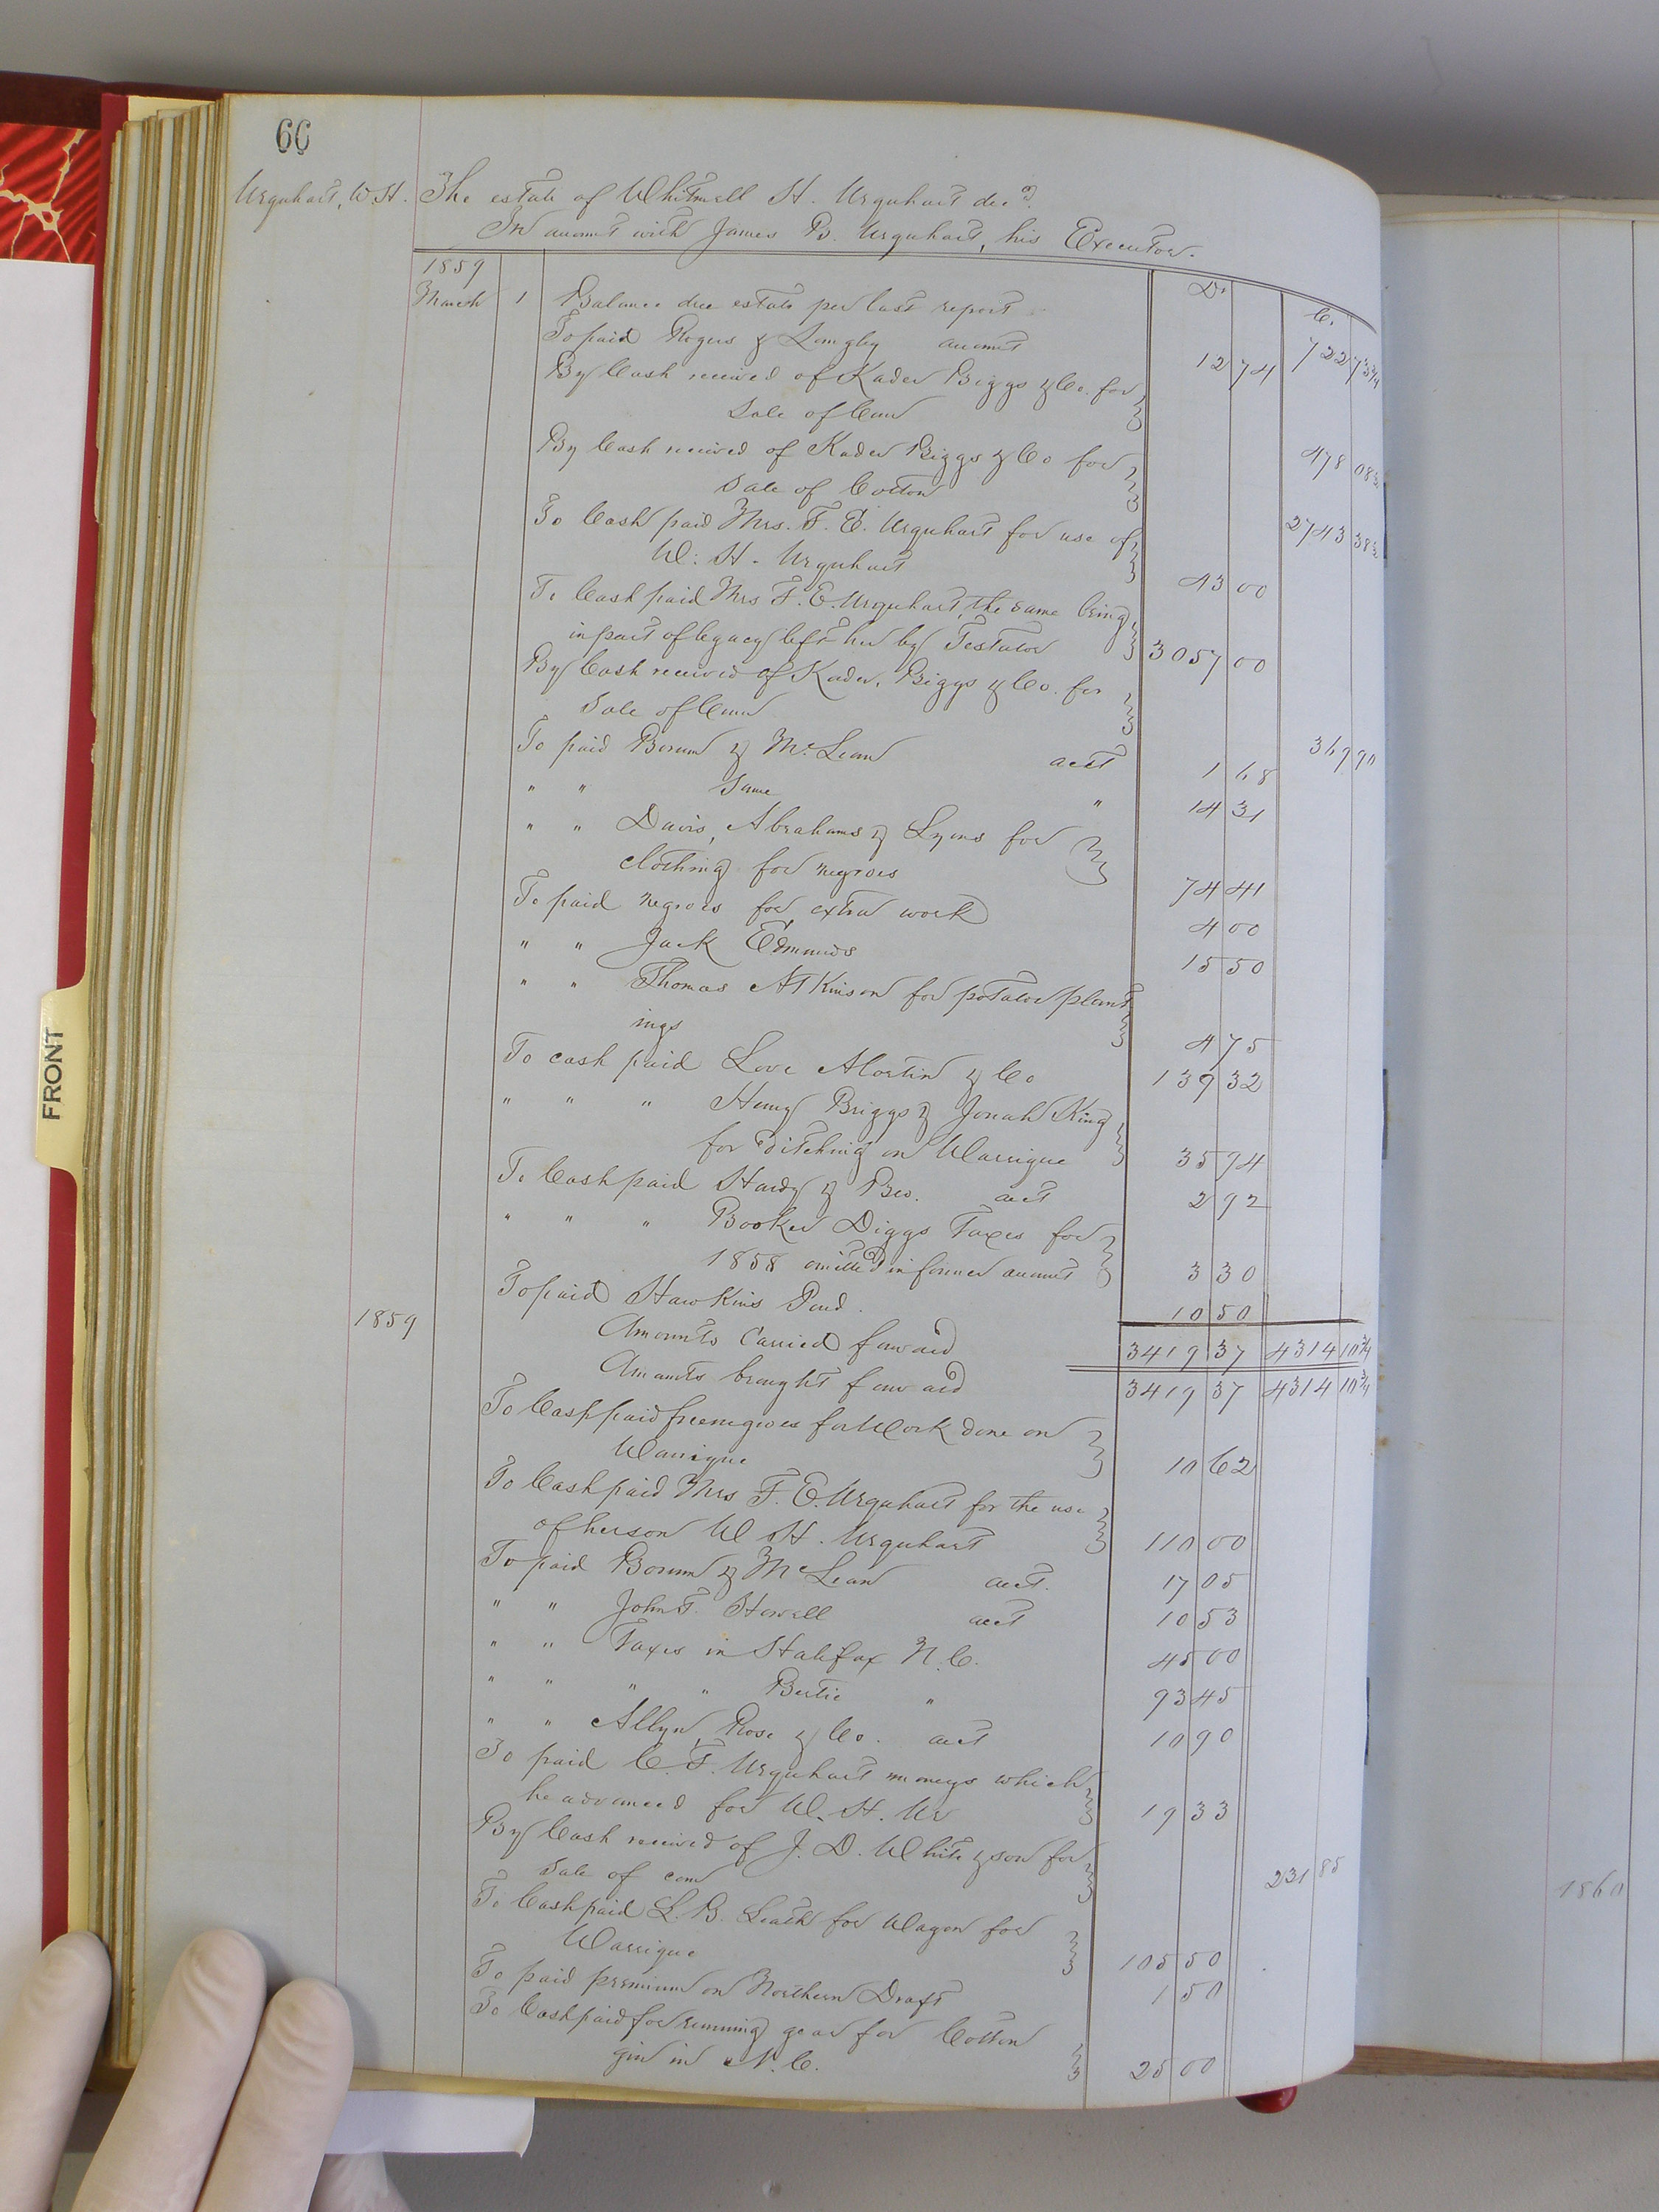 60
Urquhart, W. H. The estate of Whitmell H. Urquhart decd.
In account with James B. Urquhart, his Executor.
1859 Dr. Cr.
March 1 Balance due estate per last report 722 73 3/4
To paid Rogers & Langley account 12 74
By Cash received of Kader Biggs & Co. for
Sale of Corn 478 08 1/2
By Cash received of Kader Biggs & Co for
Sale of Cotton 2743 38 1/2
To Cash paid Mrs. F. E. Urquhart for use of
W. H. Urquhart 43 00
To Cash paid Mrs F. E. Urquhart, the same being
in part of legacy left her by Testator 3057 00
By Cash received of Kader, Biggs & Co. for
Sale of Corn 369 90
To paid Borum & McLean acct 1 68
" " Same " 14 31
" " Davis, Abrahams & Lyons for
clothing for negroes 74 41
To paid negroes for extra work 4 00
" " Jack Edmunds 15 50
" " Thomas Atkinson for potatoe plant
ings 4 75
To cash paid Love Martin & Co 139 32
" " " Henry Briggs & Jonah King
for ditching on Warrique 35 94
To Cash paid Hardy & Bro. acct 2 92
" " " Booker Diggs Taxes for
1858 omitted in former account 3 30
To paid Hawkins Pond. 10 50
1859 Amounts Carried forward 3419 37 4314 10 3/4
Amounts brought forward 3419 37 4314 10 3/4
To Cash paid free negroes for Work done on
Warrique 10 62
To Cash paid Mrs F. E. Urquhart for the use
of her son W H. Urquhart 110 00
To paid Borum & McLean acct. 17 05
" " John T. Howell acct 10 53
" " Taxes in Halifax N. C. 45 00
" " " " Bertie " 93 45
" " Allyn, Rose & Co. acct 10 90
To paid C. F. Urquhart moneys which
he advanced for W. H. Ur 19 33
By Cash received of J. D. White & son for
Sale of corn 231 85
To Cash paid L. B. Leath for Wagon for
Warrique 105 50
To paid premium on Northern Draft 1 50
To Cash paid for running gear for Cotton
gin in N. C. 25 00
1860
FRONT